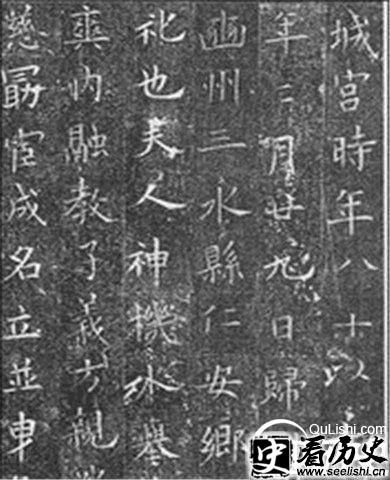 城宫時年八十以
年二月廿九日歸
豳州三水縣仁安鄉
礼也夫人神機外
爽内融教子義方親
慈勗宦成名立並
QuLishi.com
史 看历史
www.seelishi.cn